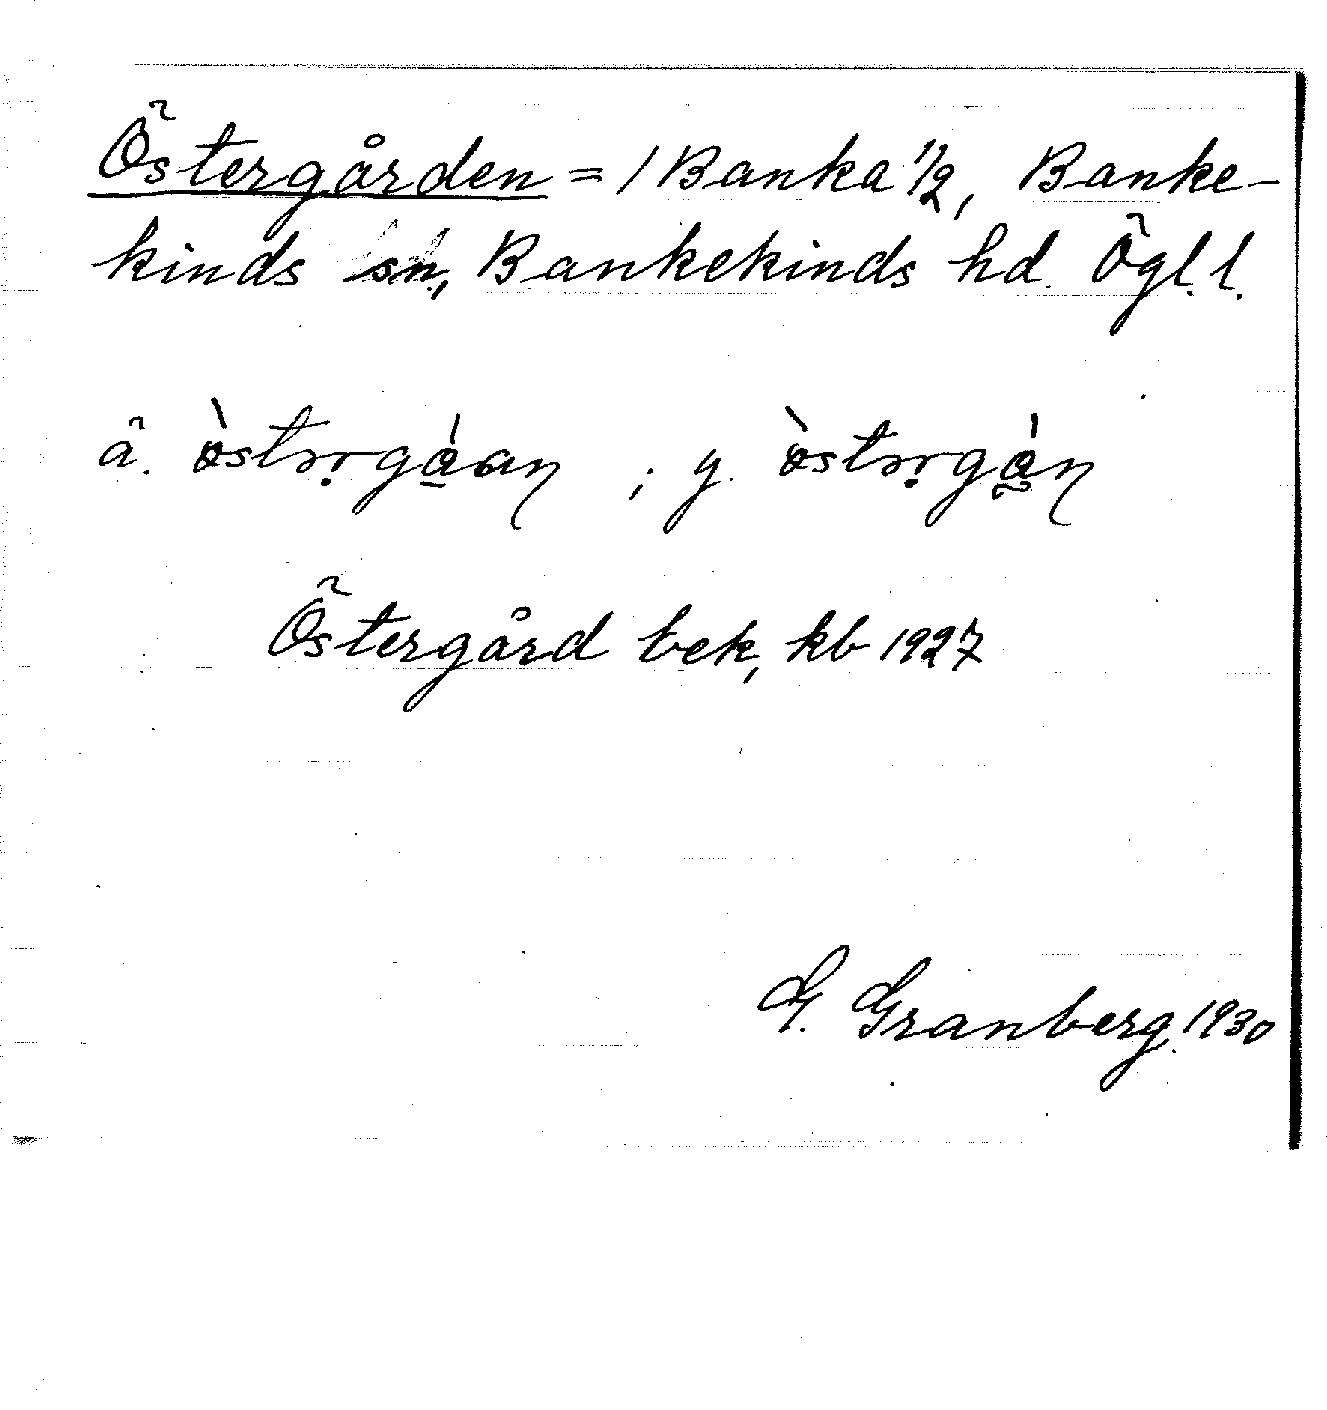 Östergården = 1 Banka 1/2, Banke-
kinds sn, Bankekinds hd. Ögl. l.
ä. òstərgáan ; y. òstərgán
Östergård bek, kb 1927
G. Granberg. 1930